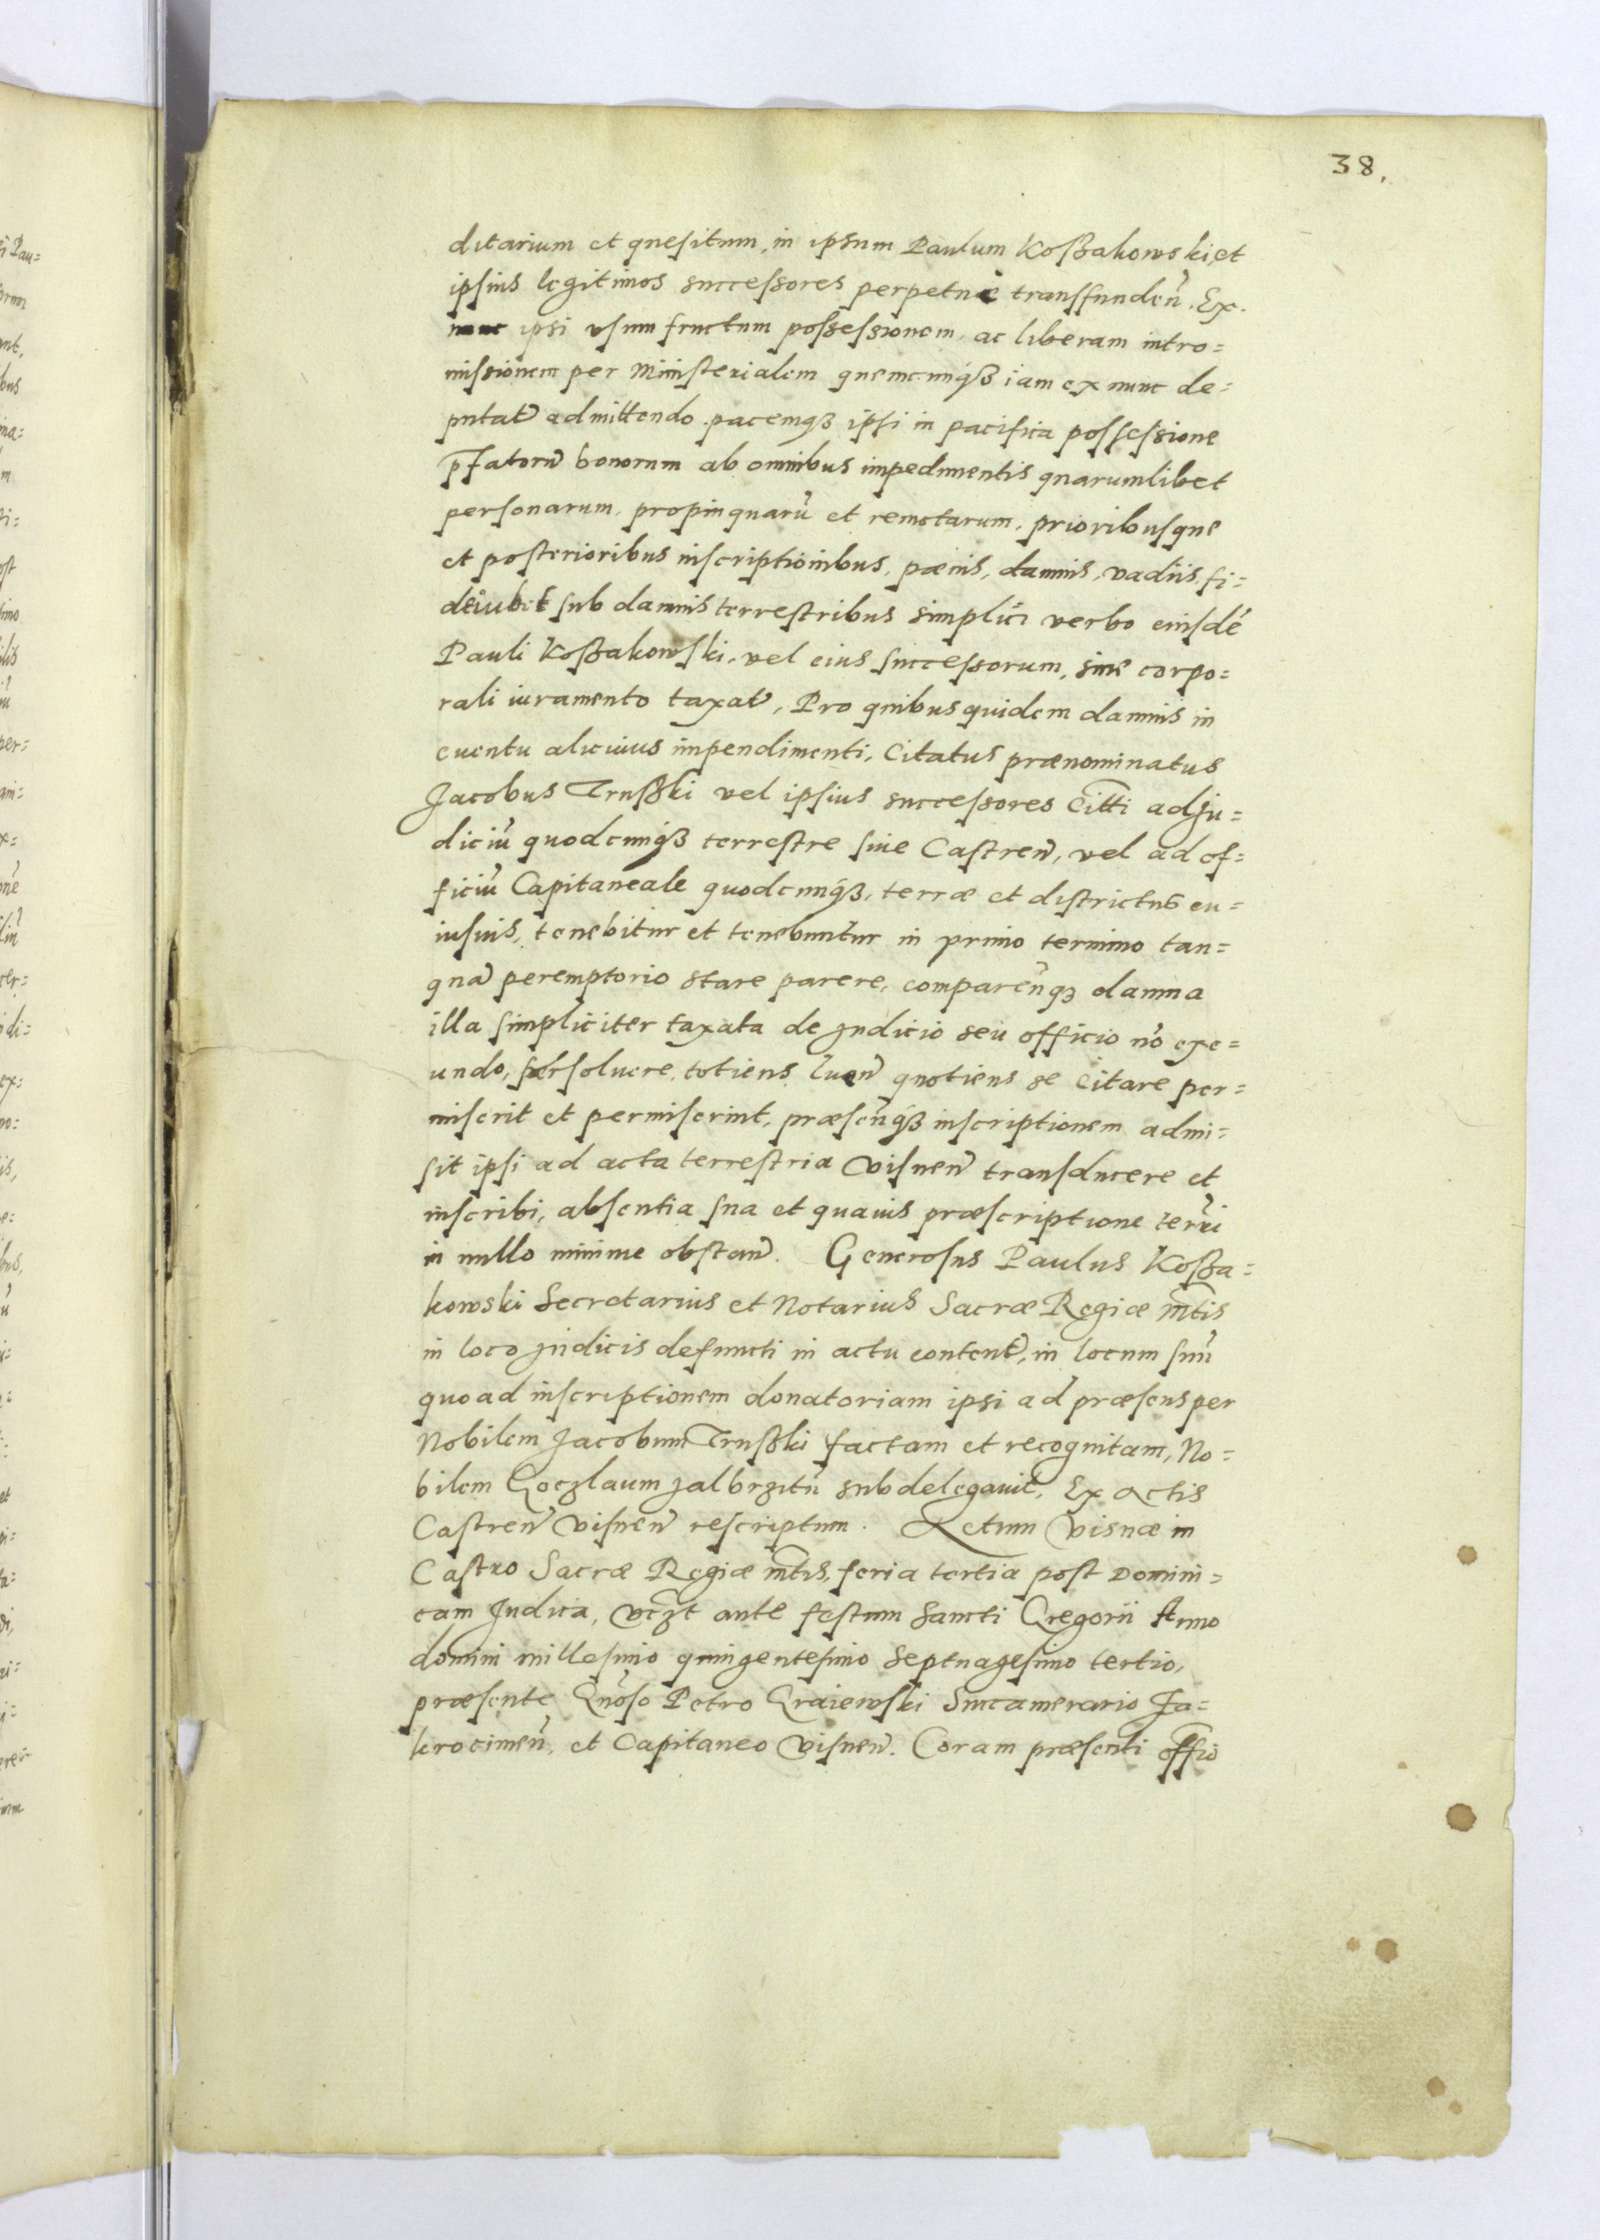 38.
ditarium et quesitum, in ipsum Paulum Koßakowski, et
ipsius legitimos successores perpetuè transfunden̄. Ex
nunc ipsi vsum fructum possessionem, ac liberam intro=
missionem per Ministerialem quemcunqȝ iam ex nunc de=
putat̄ admittendo. pacemqȝ ipsi in pacifica possessione
p̄fatorū bonorum ab omnibus impedimentis quarumlibet
personarum, propinquarū et remotarum, prioribusque
et posterioribus inscriptionibus, pœnis, damnis, vadiis, fi=
deiub: sub damnis terrestribus simplici verbo eiusdē
Pauli Koßakowski, vel eius successorum, sine corpo=
rali iuramento taxat̄, Pro quibus quidem damnis in
euentu alicuius impendimenti, Citatus prænominatus
Jacobus Trußki vel ipsius successores Citti ad Ju=
diciū quodcunqȝ terrestre siue Castren̄, vel ad of=
ficiū Capitaneale quodcunqȝ, terræ et districtus cu=
iusuis, tenebitur et tenebuntur in primo termino tan=
quā peremptorio stare parere, comparen̄qȝ damna
illa simpliciter taxata de Judicio seu officio nō exe=
undo, persoluere, totiens quotiens se Citare per=
miserit et permiserint, præsen̄qȝ inscriptionem admi=
sit ipsi ad acta terrestria Visnen̄ transducere et
inscribi, absentia sua et quauis præscriptione terri
in nullo minime obstan̄. Generosus Paulus Koßa=
kowski Secretarius et Notarius Sacræ Regiæ Mtis
in loco Judicis defuncti in actu content̄, in locum suū
quo ad inscriptionem donatoriam ipsi ad præsens per
Nobilem Jacobum Trußki factam et recognitam, No=
bilem Goczlaum subdelegauit. Ex Actis
Castren̄ Visnen̄ rescriptum. Actum Visnæ in
Castro Sacræ Regiæ Mtis, feria tertia post Domini=
cam Judica, vczt ante festum Sancti Gregorii Anno
domini millesimo quingentesimo septuagesimo tertio,
præsente Gn̄oso Petro Graiewski Succamerario Za=
krocimen̄, et Capitaneo Visnen̄. Coram præsenti offio